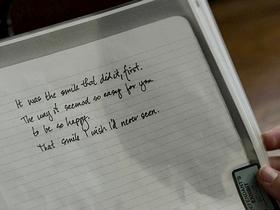 It was the smile that did it, first.
The way it seemed so easy for you
to be so happy.
That smile I wish I'd never seen.